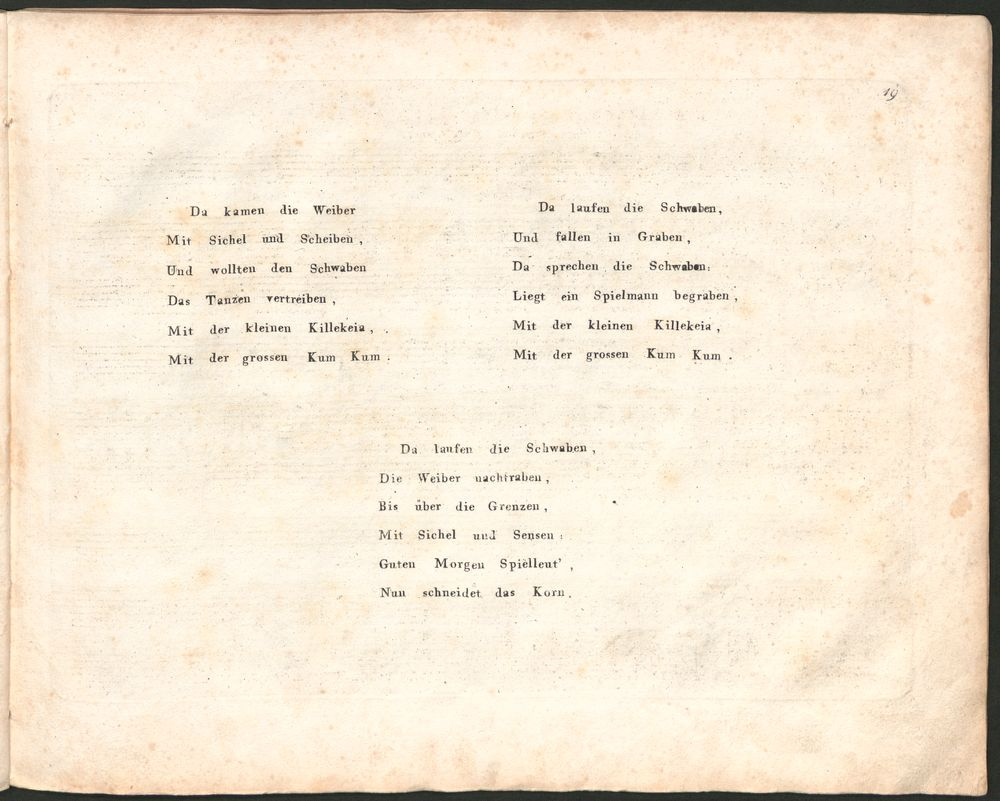 19
Da kamen die Weiber
Mit Sichel und Scheiben,
Und wollten den Schwaben
Das Tanzen vertreiben,
Mit der kleinen Killekeia,
Mit der grossen Kum Kum.
Da laufen die Schwaben,
Und fallen in Graben,
Da sprechen die Schwaben:
Liegt ein Spielmann begraben,
Mit der kleinen Killekeia,
Mit der grossen Kum Kum.
Da laufen die Schwaben,
Die Weiber nachtraben,
Bis über die Grenzen,
Mit Sichel und Sensen:
Guten Morgen Spielleut',
Nun schneidet das Korn.